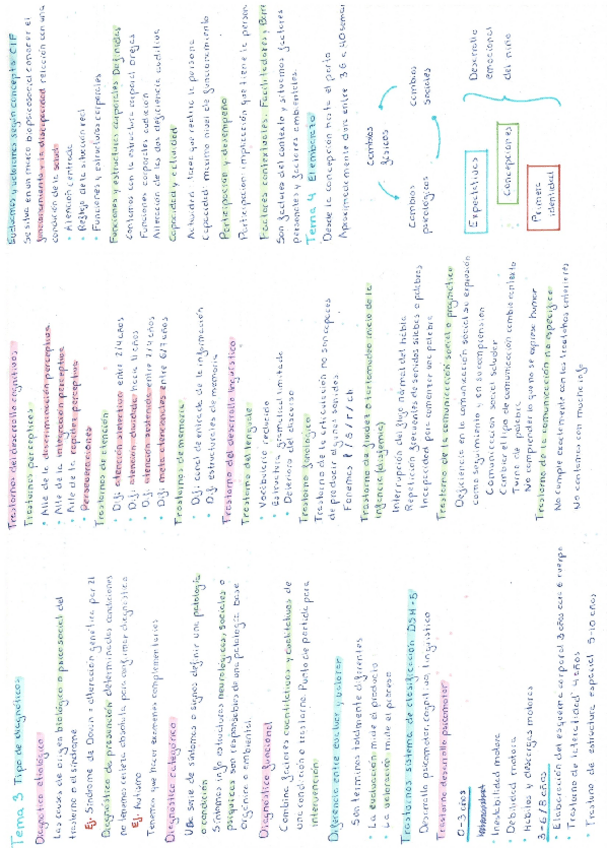 Tema 3 Tipo de diagnóstico
Diagnostico etiológico
Las causas de origen biológico o psicosocial del
trastorno o el síndrome
Ej. Síndrome de Down: alteración genética par 21
Diagnostico de presunción determinadas condiciones
no tenemos certeza absoluta para confirmar diagnostico
Ej. Autismo
Tenemos que hacer examenes complementarios
Diagnostico categórico
Usa serie de síntomas o signos definir una patología
o condición
Síntomas info estructuras neurologicas, sociales o
psíquicas son responsables de una patología. Base
orgánica o ambiental.
Diagnostico funcional
Combina factores cuantitativos y cualitativos de
una condición o trastorno. Punto de partida para
intervención
Diferencia entre evaluar y valorar
Son terminos totalmente diferentes
• La evaluación mide el producto
• La valoración mide el proceso
Trastornos sistema de clasificación DSM-5
Desarrollo psicomotor, cognitivo, lingüístico
Trastorno desarrollo psicomotor
0-3 años
• Inestabilidad motora
• Debilidad motora
• Habitos y descargas motoras
3-6/8 años
• Elaboración del esquema corporal 3 años
• Trastorno de lateralidad 4 años
• Trastorno de estructura espacial 5-10 años
Trastornos del desarrollo cognitivos
Trastornos perceptivos
• Alte. de la discriminación perceptiva
• Alte de la integración perceptiva
• Alte de la rapidez perceptiva
• Perseveraciones
Trastornos de atención
• Dif. atención selectiva entre 2/4 años
• Dif. atención dividida hacia 4 años
• Dif. atención sostenida entre 3/4 años
• Dif. meta atencionales entre 6/7 años
Trastornos de memoria
• Dif. canal de entrada de la información
• Dif. estructurales de memoria
Trastorno del desarrollo lingüístico
Trastorno del lenguaje
• Vocabulario reducido
• Estructura gramatical limitada
• Deterioro del discurso
Trastorno fonologico
Trastorno de la articulación no son capaces
de producir algunos sonidos
Fonemas
Trastorno de fluidez o tartamudeo inicio de la
infancia (disfemia)
Interrupción del flujo normal del habla
Repetición frecuentes de sonidos silabas o palabras
Incapacidad para comenzar una palabra
Trastorno de la comunicación social o pragmatica
Deficiencia en la comunicación social su expresión
como seguimiento y en su comprensión
Comunicación social saludar
Cambiar el tipo de comunicación cambie contexto
Turno de palabra
No comprender lo que no se exprese humor
Trastorno de la comunicación no especifica
No cumple exactamente con los trastornos anteriores
No contamos con mucha info
según concepto CIF
Se situa en un marco biopsicosocial conocer el
funcionamiento y la discapacidad relación con una
condición de la salud
• Atención centrada
• Reflejo de la situación real
• Funciones y estructuras corporales
Funciones y estructuras corporales Definidas
Contamos con la estructura corporal orejas
Funciones corporales audición
Alteración de las dos deficiencia auditiva
Capacidad y actividad
Actividad tarea que realiza la persona
Capacidad maximo nivel de funcionamiento
Participación y desempeño
Participación: implicación que tiene la person
Factores contextuales. Facilitadores y Barr
Son factores del contexto y situamos factores
personales y factores ambientales.
Tema 4 El embarazo
Desde la concepción hasta el parto
Aproximadamente dura entre 36 a 40 seman
Cambios
físicos
Cambios
psicologicos
Cambios
sociales
Expectativas
Concepciones
Primera
identidad
Desarrollo
emocional
del niño